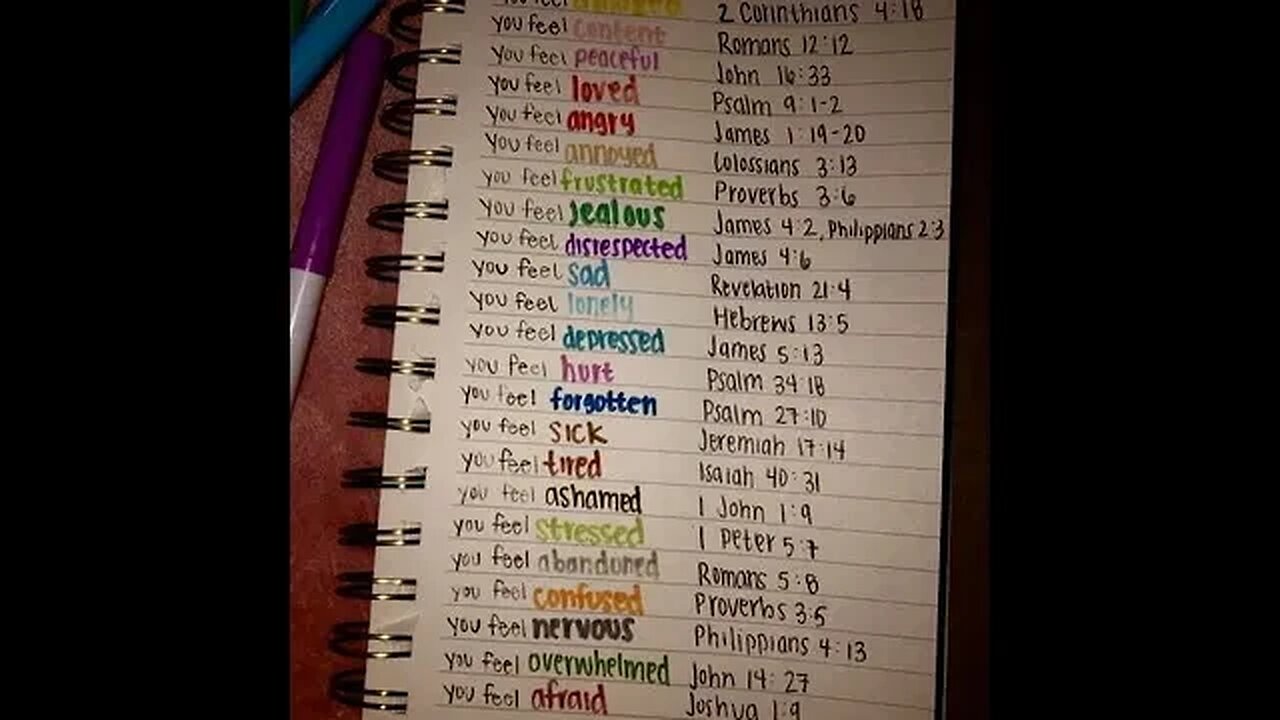 you feel 2 Corinthians 4:18
you feel content Romans 12:12
you feel peaceful John 16:33
you feel loved Psalm 9:1-2
you feel angry James 1:19-20
you feel annoyed Colossians 3:13
you feel frustrated Proverbs 3:6
you feel jealous James 4:2, Philippians 2:3
you feel disrespected James 4:6
you feel sad Revelation 21:4
you feel lonely Hebrews 13:5
you feel depressed James 5:13
you feel hurt Psalm 34:18
you feel forgotten Psalm 27:10
you feel sick Jeremiah 17:14
you feel tired Isaiah 40:31
you feel ashamed 1 John 1:9
you feel stressed 1 Peter 5:7
you feel abandoned Romans 5:8
you feel confused Proverbs 3:5
you feel nervous Philippians 4:13
you feel overwhelmed John 14:27
you feel afraid Joshua 1:9